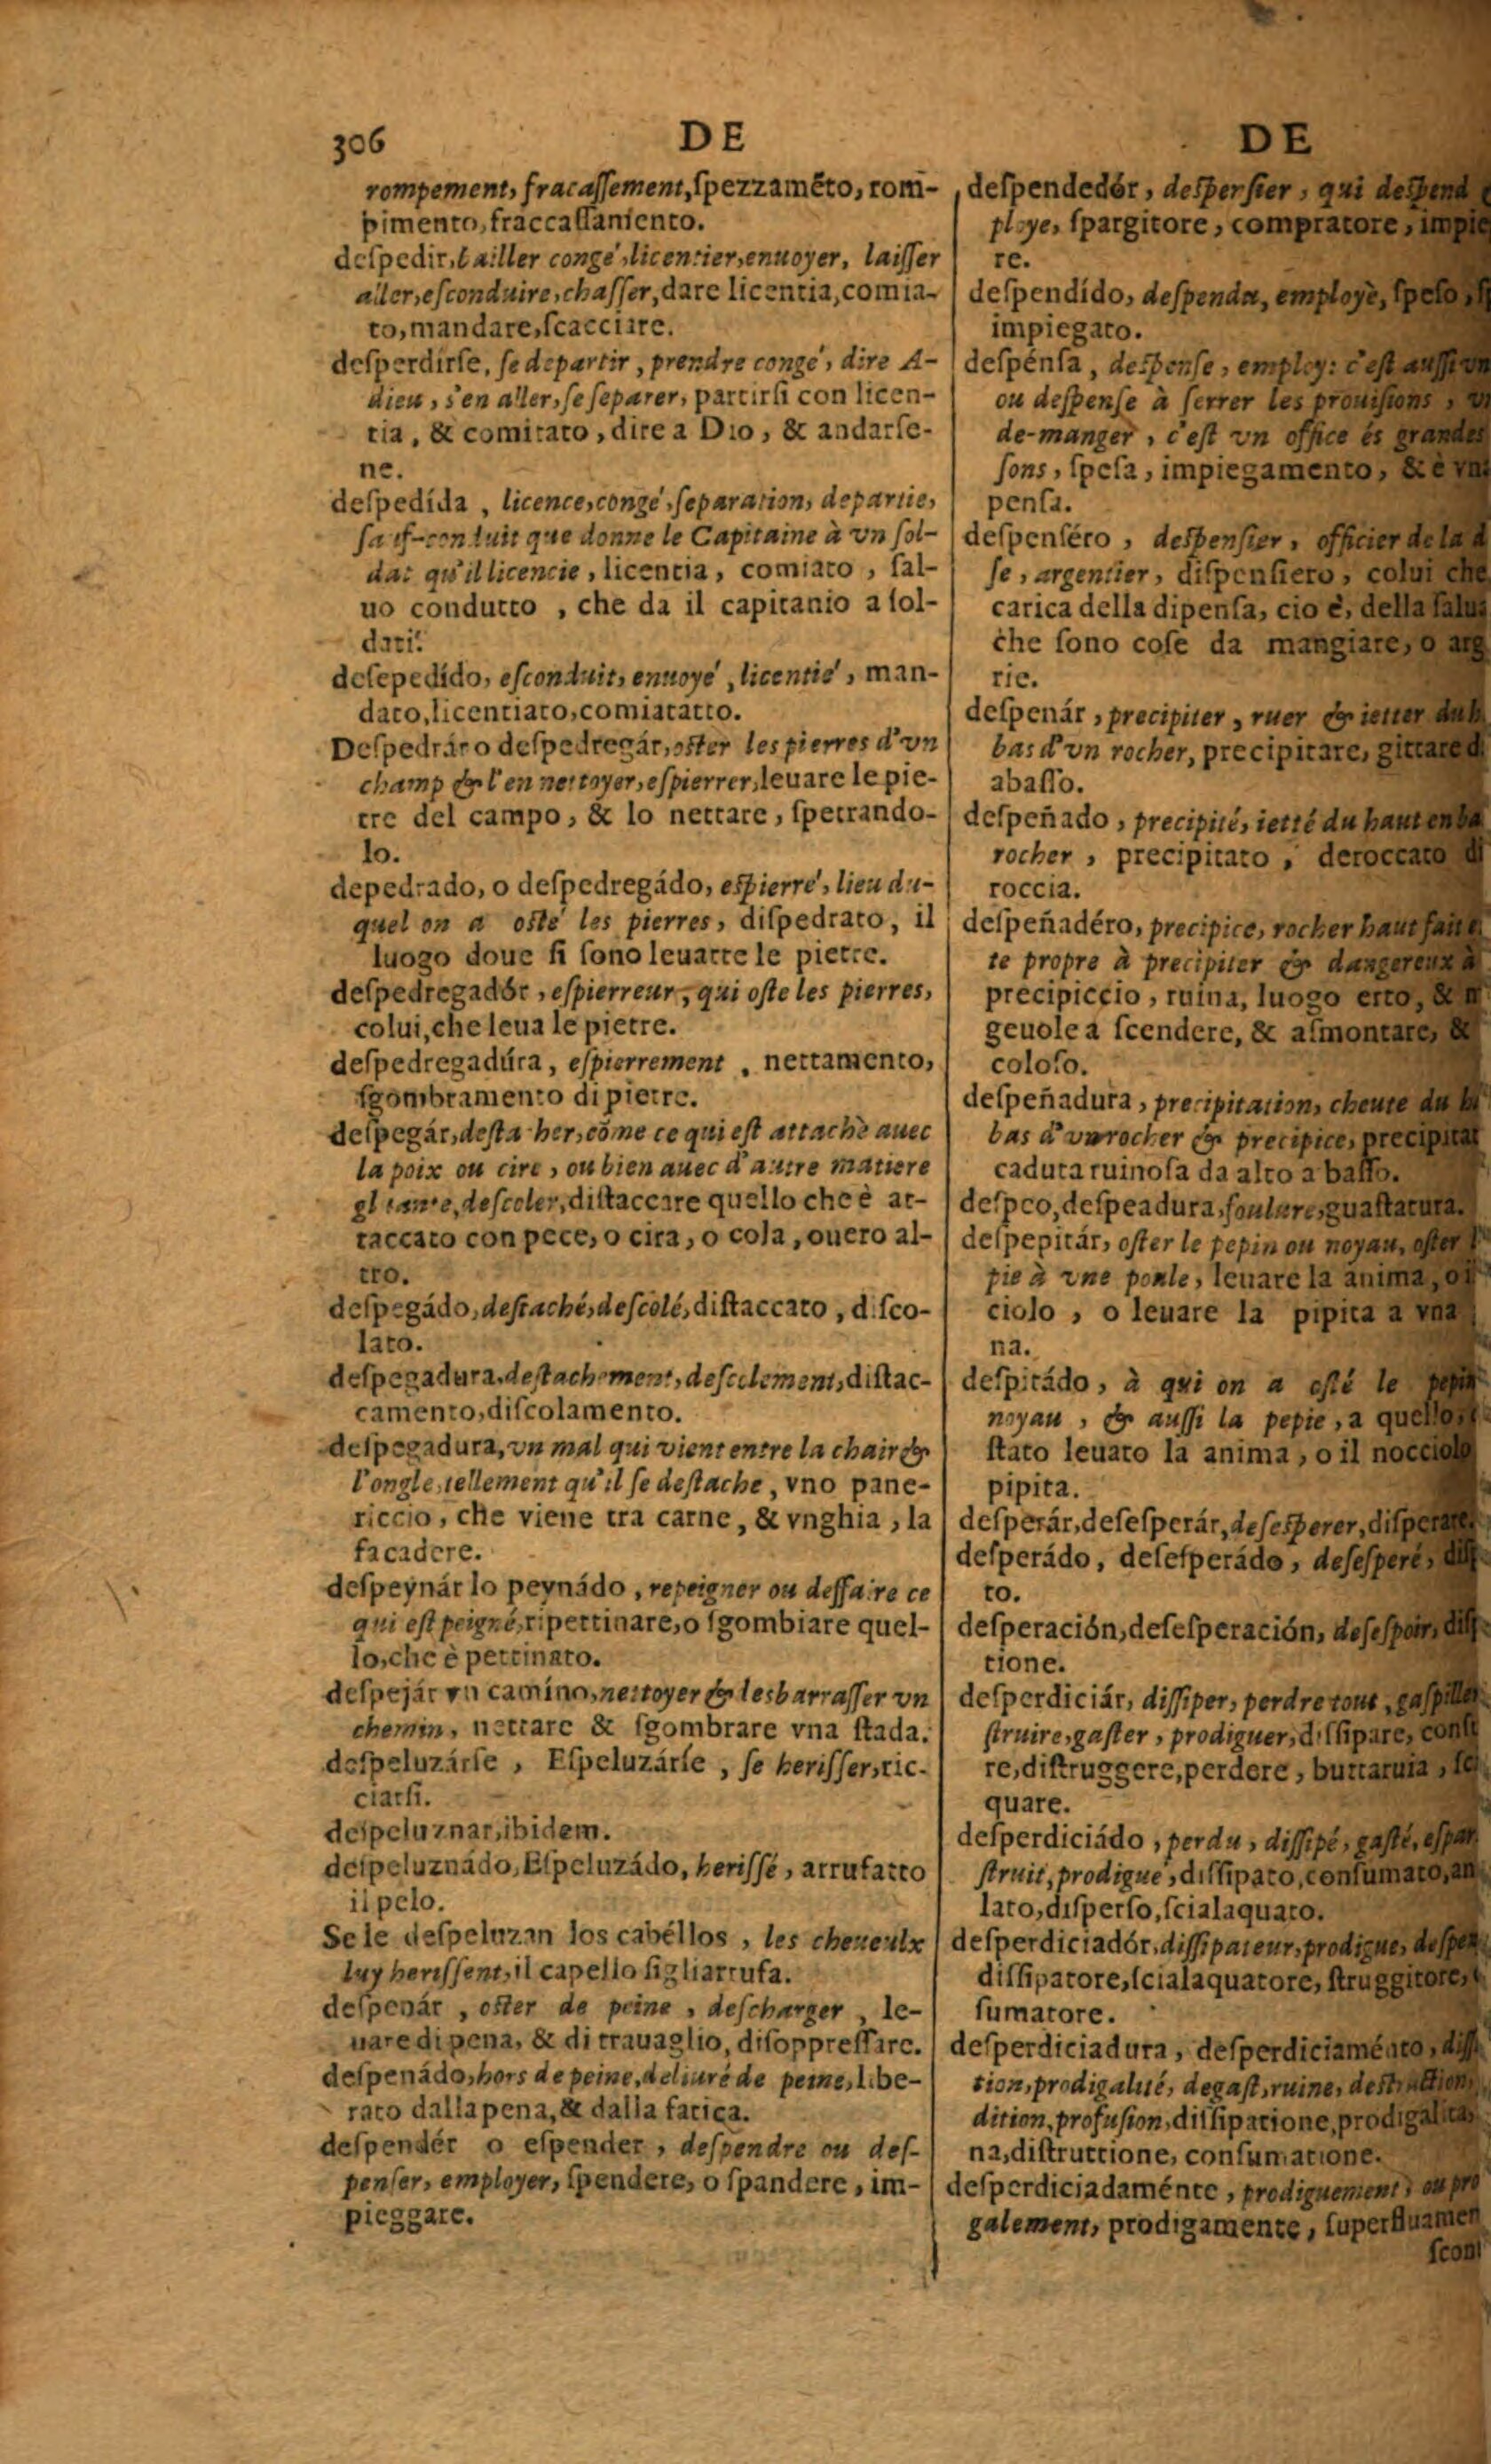 306 DE DE
rompement, fracaſſement, ſpezzamēto, rom-
pimento, fraccaſſamento.
deſpedir, bailler congé, licentier, enuoyer, laiſſer
aller, eſconduire, chaſſer, dare licentia, comia-
to, mandare, ſcacciare.
deſperdirſe, ſe departir, prendre congé, dire A-
dieu, s'en aller, ſe ſeparer, partirſi con licen-
tia, & comitato, dire a Dio, & andarſe-
ne.
deſpedída, licence, congé, ſeparation, departie,
ſauf-conduit que donne le Capitaine à vn ſol-
dat qu'il licencie, licentia, comiato, ſal-
uo condutto, che da il capitanio a ſol-
dati.
deſepedído, eſconduit, enuoyé, licentié, man-
dato, licentiato, comiatatto.
Deſpedrár o deſpedregár, oſter les pierres d'vn
champ & l'en nettoyer, eſpierrer, leuare le pie-
tre del campo, & lo nettare, ſpetrando-
lo.
depedrado, o deſpedregádo, eſpierré, lieu du-
quel on a oſté les pierres, diſpedrato, il
luogo doue ſi ſono leuatte le pietre.
deſpedregadór, eſpierreur, qui oſte les pierres,
colui, che leua le pietre.
deſpedregadúra, eſpierrement, nettamento,
ſgombramento di pietre.
deſpegár, deſtacher, cōme ce qui eſt attaché auec
la poix ou cire, ou bien auec d'autre matiere
gluante, deſcoler, diſtaccare quello che è at-
taccato con pece, o cira, o cola, ouero al-
tro.
deſpegádo, deſtaché, deſcolé, diſtaccato, diſco-
lato.
deſpegadura, deſtachement, deſcolement, diſtac-
camento, diſcolamento.
deſpegadura, vn mal qui vient entre la chair &
l'ongle, tellement qu'il ſe deſtache, vno pane-
riccio, che viene tra carne, & vnghia, la
fa cadere.
deſpeynár lo peynádo, repeigner ou deffaire ce
qui eſt peigné, ripettinare, o ſgombiare quel-
lo, che è pettinato.
deſpejár vn camíno, nettoyer & desbarraſſer vn
chemin, nettare & ſgombrare vna ſtada.
deſpeluzárſe, Eſpeluzárſe, ſe heriſſer, ric-
ciarſi.
deſpeluznar, ibidem.
deſpeluznádo, Eſpeluzádo, heriſſé, arrufatto
il pelo.
Se le deſpeluzan los cabéllos, les cheueulx
luy heriſſent, il capello ſigliarrufa.
deſpenár, oſter de peine, deſcharger, le-
uare di pena, & di trauaglio, diſoppreſſare.
deſpenádo, hors de peine, deliuré de peine, libe-
rato dalla pena, & dalla fatica.
deſpendér o eſpender, deſpendre ou deſ-
penſer, employer, ſpendere, o ſpandere, im-
pieggare.
deſpendedór, deſpenſier, qui deſpend
ploye, ſpargitore, compratore, impie
re.
deſpendído, deſpendu, employè, ſpeſo,
impiegato.
deſpénſa, deſpenſe, employ: c'eſt auſſi vn
ou deſpenſe à ſerrer les prouiſions,
de-manger, c'eſt vn office és grandes
ſons, ſpeſa, impiegamento, & è vna
penſa.
deſpenſéro, deſpenſier, officier de la d
ſe, argentier, diſpenſiero, colui che
carica della dipenſa, cio è, della ſalua
che ſono coſe da mangiare, o arg
rie.
deſpenár, precipiter, ruer & ietter du h
bas d'vn rocher, precipitare, gittare d
abaſſo.
deſpeñado, precipité, ietté du haut en ba
rocher, precipitato, deroccato di
roccia.
deſpeñadéro, precipice, rocher haut fait
te propre à precipiter & dangereux à
precipiccio, ruina, luogo erto, &
geuole a ſcendere, & aſmontare, &
coloſo.
deſpeñadura, precipitation, cheute du
bas d'vn rocher & precipice, precipitat
caduta ruinoſa da alto a baſſo.
deſpeo, deſpeadura, foulure, guaſtatura.
deſpepitár, oſter le pepin ou noyau, oſter
pie à vne poule, leuare la anima, o
ciolo, o leuare la pipita a vna
na.
deſpitádo, à qui on a oſté le pepin
noyau, & auſſi la pepie, a quello,
ſtato leuato la anima, o il nocciolo
pipita.
deſperár, deſeſperár, deſeſperer, diſperare.
deſperádo, deſeſperádo, deſeſperé, diſ
to.
deſperación, deſeſperación, deſeſpoir, diſ
tione.
deſperdiciár, diſſiper, perdre tout, gaſpiller
ſtruire, gaſter, prodiguer, diſſipare, conſu
re, diſtruggere, perdere, buttaruia, ſci
quare.
deſperdiciádo, perdu, diſſipé, gaſté, eſpar
ſtruit, prodigué, diſſipato, conſumato, an
lato, diſperſo, ſcialaquato.
deſperdiciadór, diſſipateur, prodigue, deſpen
diſſipatore, ſcialaquatore, ſtruggitore,
ſumatore.
deſperdiciadura, deſperdiciaménto, diſſi
tion, prodigalité, degaſt, ruine, deſtruction,
dition, profuſion, diſſipatione, prodigalita,
na, diſtruttione, conſumatione.
deſperdiciadaménte, prodiguement, ou pro
galement, prodigamente, ſuperfluamen
ſcon